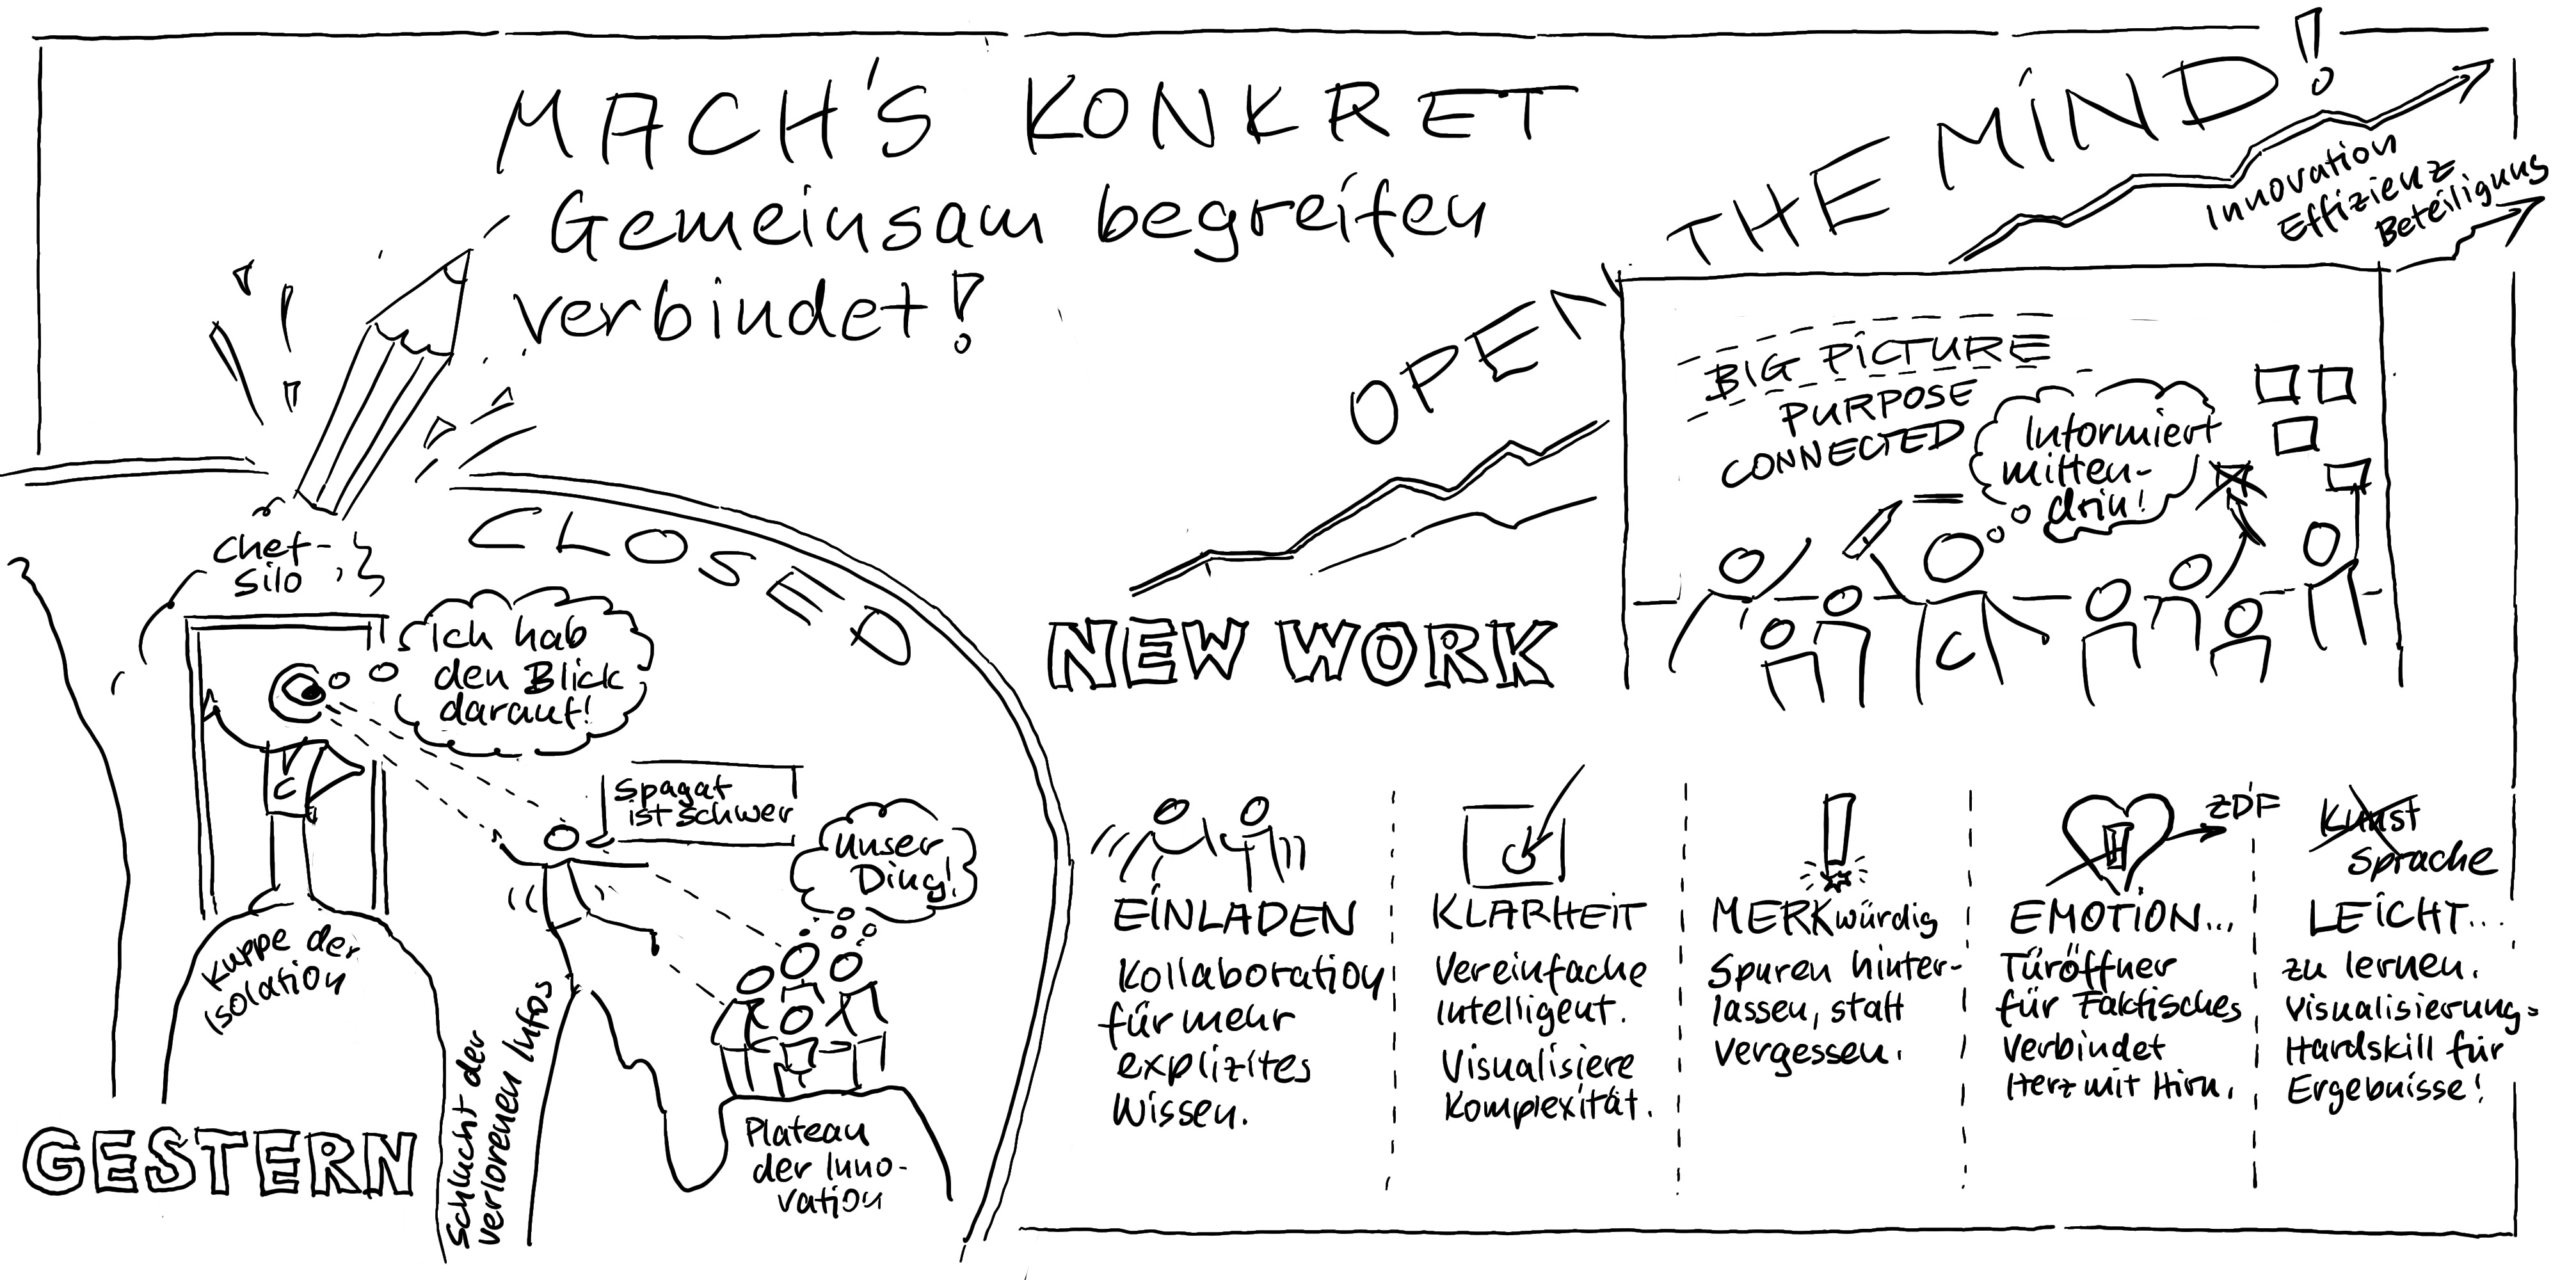 MACH'S KONKRET
Gemeinsam begreifen
verbindet!
OPEN THE MIND!
Innovation
Effizienz
Beteiligung
BIG PICTURE
PURPOSE
CONNECTED
Informiert
mitten-
drin!
C
NEW WORK
CLOSED
Chef-
silo
Ich hab
den Blick
darauf!
C
Spagat
ist schwer
Unser
Ding!
Kuppe der
Isolation
Schlucht der
verlorenen Infos
Plateau
der Inno-
vation
GESTERN
EINLADEN
Kollaboration
für mehr
explizites
Wissen.
KLARHEIT
Vereinfache
intelligent.
Visualisiere
Komplexität.
MERKwürdig
Spuren hinter-
lassen, statt
vergessen.
ZDF
EMOTION...
Türöffner
für Faktisches
Verbindet
Herz mit Hirn.
Kunst
Sprache
LEICHT...
zu lernen.
Visualisierung=
Hardskill für
Ergebnisse!